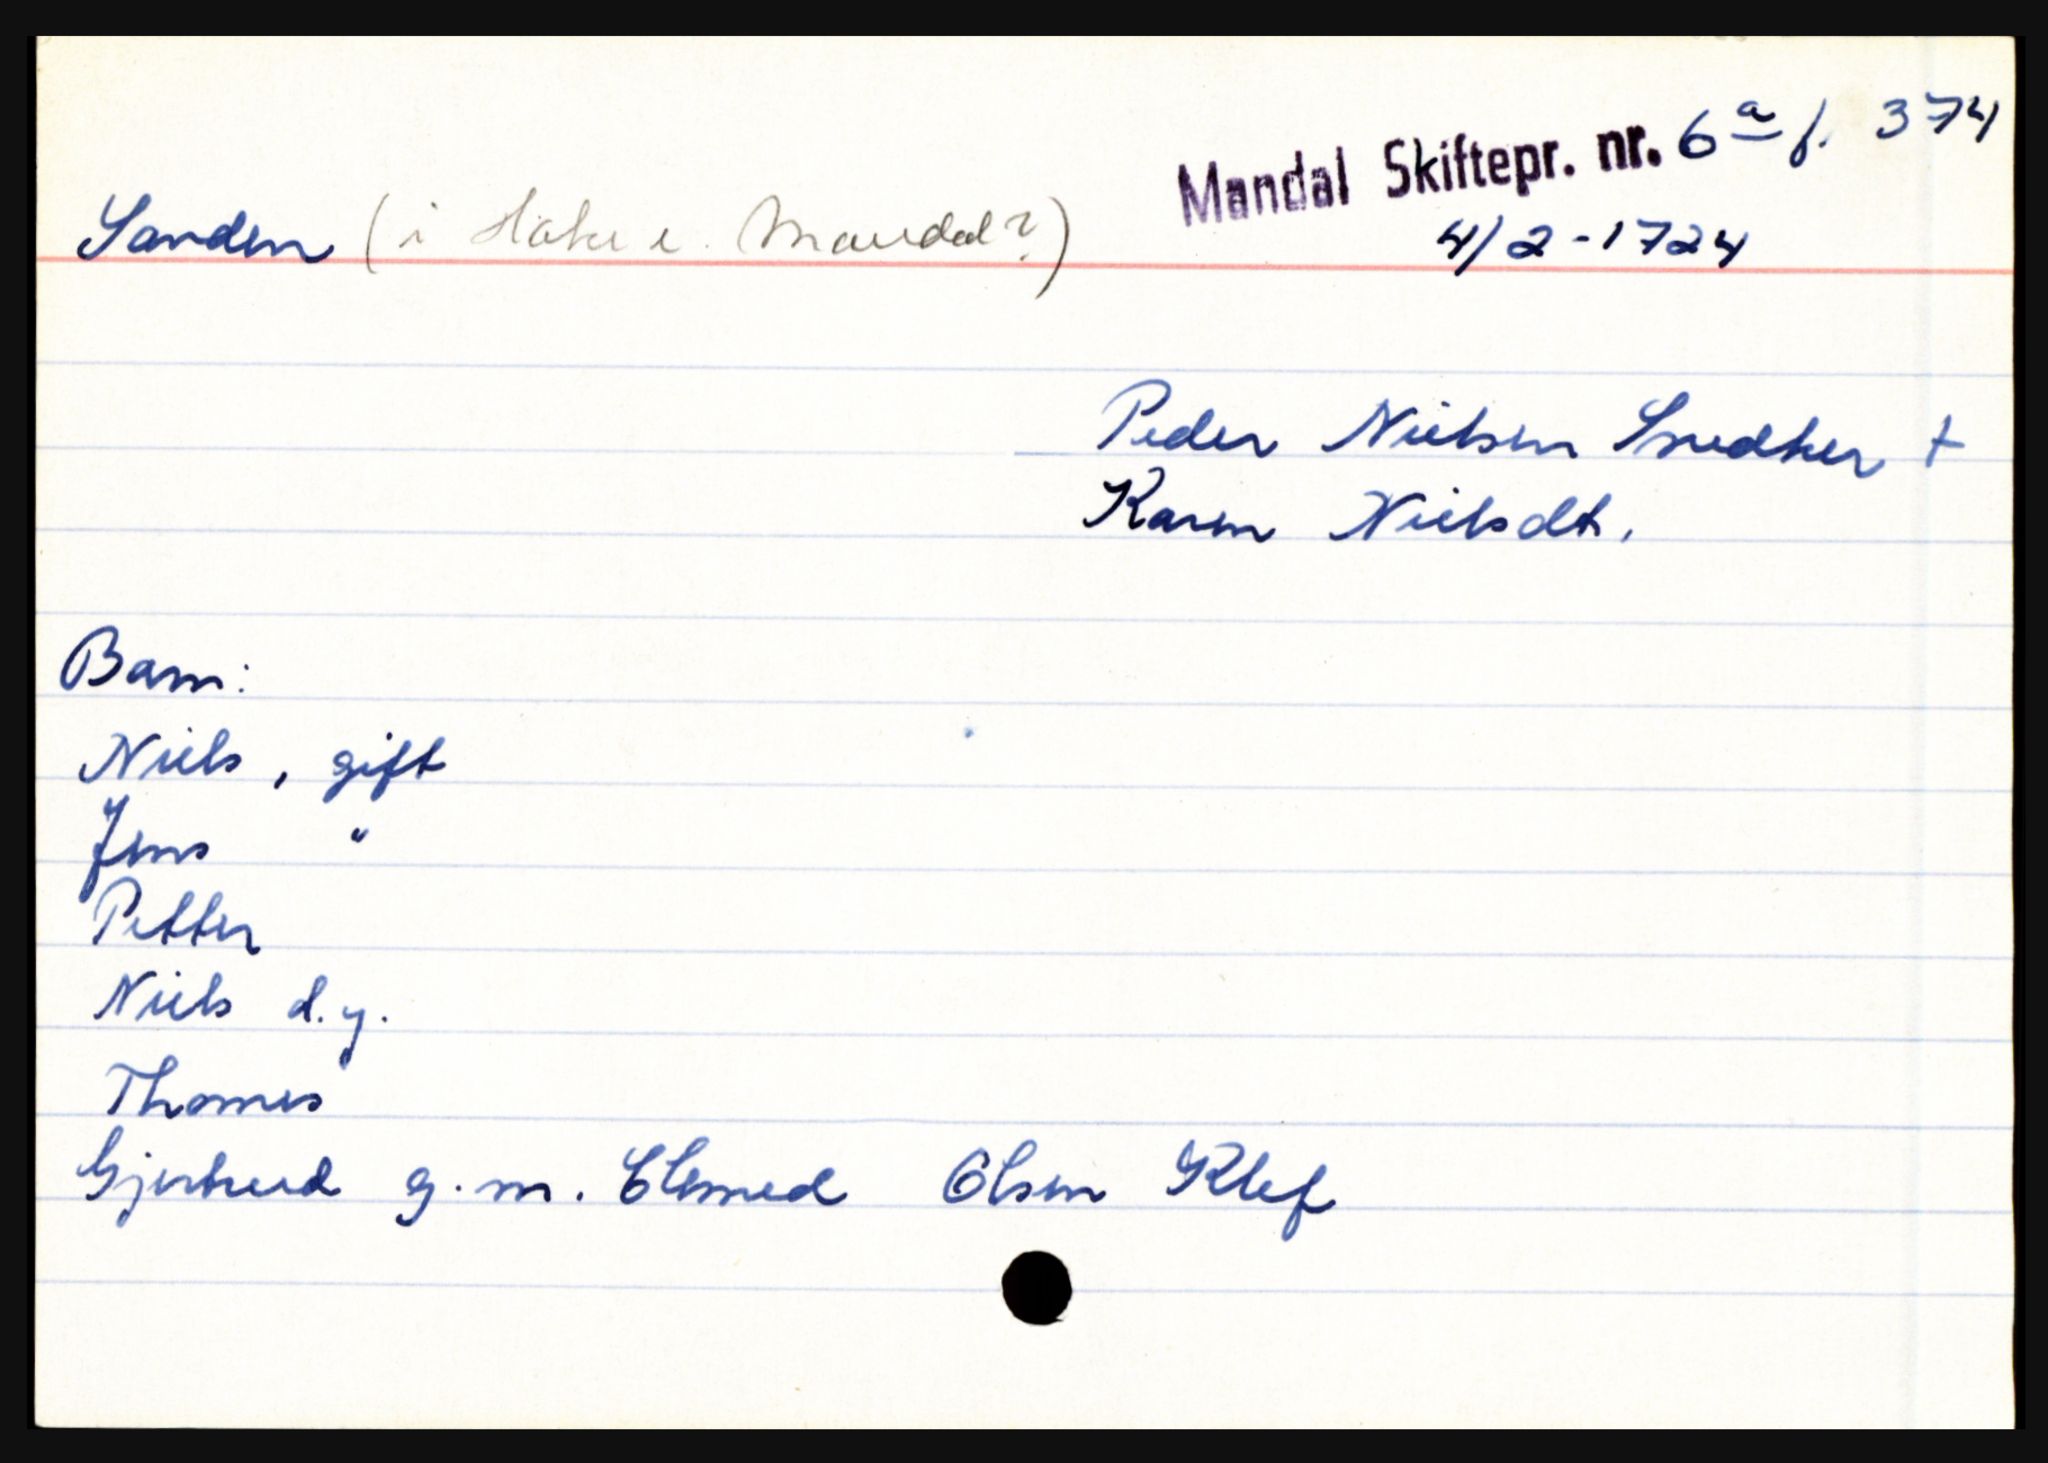 Mandal Skiftepr. nr. 6a f. 374
Sanden (i Halse e. Mandal?)
4/2-1724
Peder Nielsen Snedker +
Karen Nielsdt.
Barn:
Niels, gift
Jens "
Petter
Niels d.y.
Thomes
Gjertrud g.m. Elemed Olsen Klef